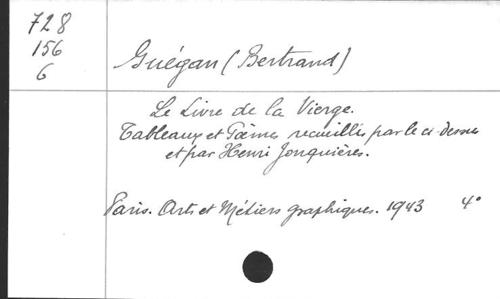 728
156
6
Guégan (Bertrand)
Le Livre de la Vierge.
Tableaux et Poèmes recueillis par le ci-dessus
et par Henri Jonquières.
Paris. Arts et Métiers graphiques. 1943 4°